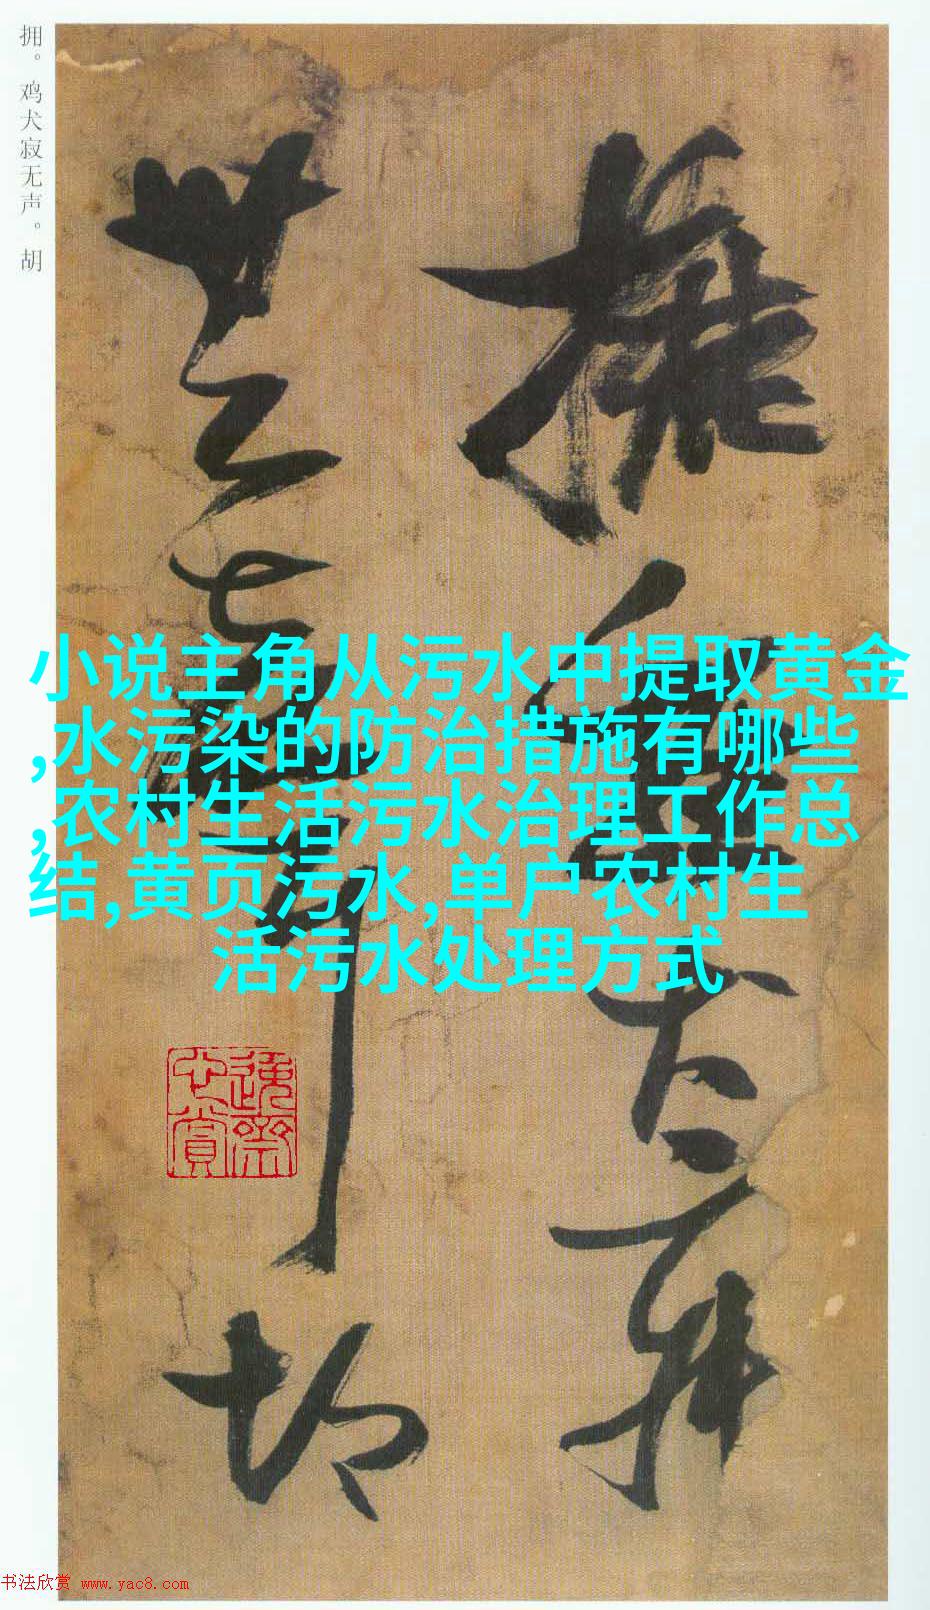 拥。鸡犬寂无声。胡
拥
鸡犬寂
无声
胡
小说主角从污水中提取黄金
,水污染的防治措施有哪些
,农村生活污水治理工作总
结,黄页污水,单户农村生
活污水处理方式
书法欣赏 www.yac8.com